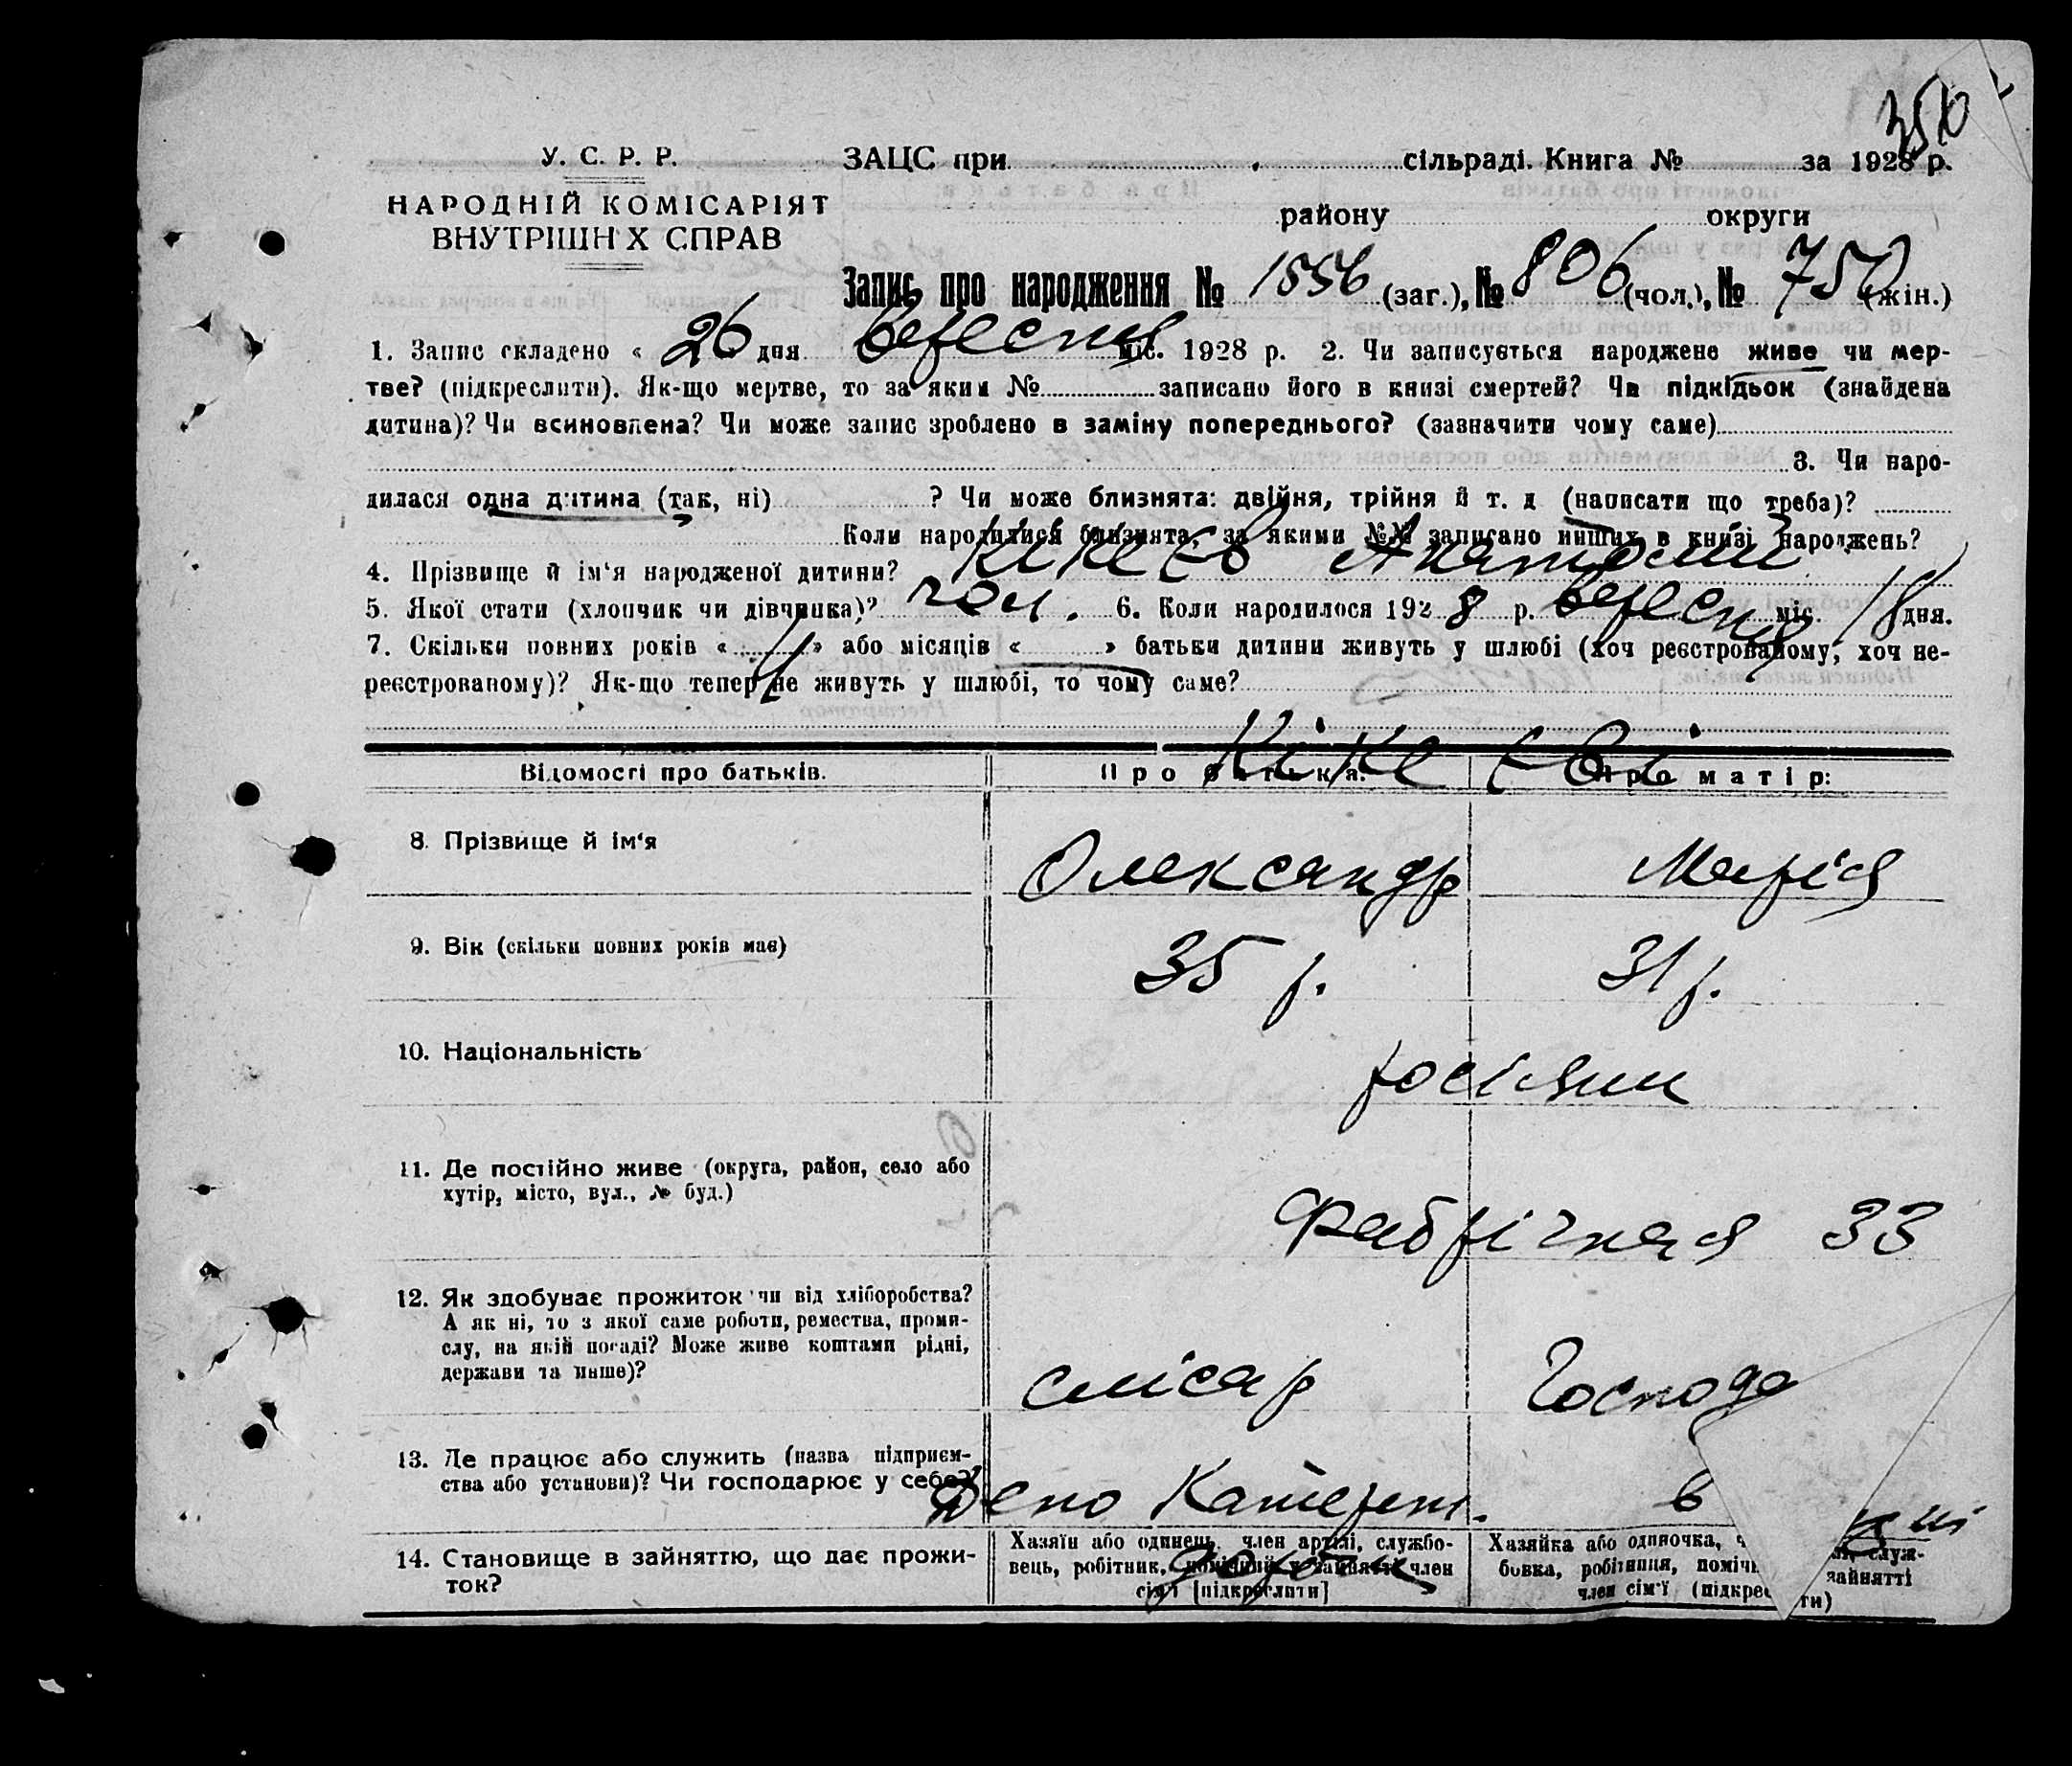 350
У. С. Р. Р. ЗАЦС при сільраді. Книга № за 1928 р.
НАРОДНІЙ КОМІСАРІЯТ району округи
ВНУТРІШНІХ СПРАВ
Запис про народження № 1556 (заг.), № 806 (чол.), № 750 (жін.)
1. Запис складено « 26 дня вересня міс. 1928 р. 2. Чи записується народжене живе чи мер-
тве? (підкреслити). Як-що мертве, то за яким № записано його в книзі смертей? Чи підкідьок (знайдена
дитина)? Чи всиновлена? Чи може запис зроблено в заміну попереднього? (зазначити чому саме)
3. Чи наро-
дилася одна дитина (так, ні) ? Чи може близнята: двійня, трійня й т. д (написати що треба)?
Коли народилися близнята, за якими №№ записано инших в книзі народжень?
4. Прізвище й ім‘я народженої дитини? Кікєєв Анатолій
5. Якої стати (хлопчик чи дівчинка)? чол. 6. Коли народилося 1928 р. вересня міс. 18 дня.
7. Скільки повних років « » або місяців « » батьки дитини живуть у шлюбі (хоч реєстрованому, хоч не-
реєстрованому)? Як-що тепер не живуть у шлюбі, то чому саме?
Кікєєві
Відомості про батьків. Про батька: Про матір:
8. Прізвище й ім‘я Олександр Марія
9. Вік (скільки повних років має) 35 р. 31 р.
10. Національність росіяни
11. Де постійно живе (округа, район, село або
хутір, місто, вул., № буд.) Фабрічная 33
12. Як здобуває прожиток чи від хліборобства?
А як ні, то з якої саме роботи, ремества, проми-
слу, на якій посаді? Може живе коштами рідні,
держави та инше)? слісар Господо
13. Де працює або служить (назва підприєм-
ства або установи)? Чи господарює у себе? Депо Катерин. в
14. Становище в зайняттю, що дає прожи-
ток?
Хазяїн або одинець, член артілі, службо-
вець, робітник, помічний в зайнятті член
сім'ї [підкреслити]
Хазяйка або одиночка, ч
бовка, робітниця, поміч
член сім‘ї (підкрес
служ-
зайнятті
ти)